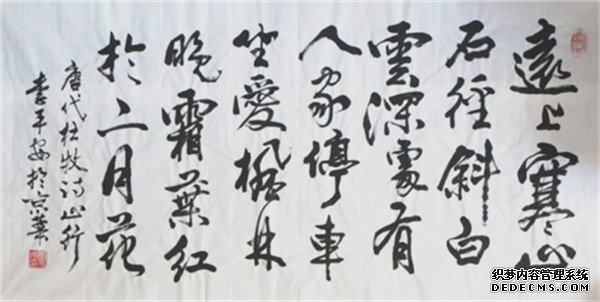 遠上寒山
石徑斜白
雲深處有
人家停車
坐愛楓林
晚霜葉紅
於二月花
唐代杜牧诗山行
李平安於京華
织梦内容管理系统
DEDECMS.COM